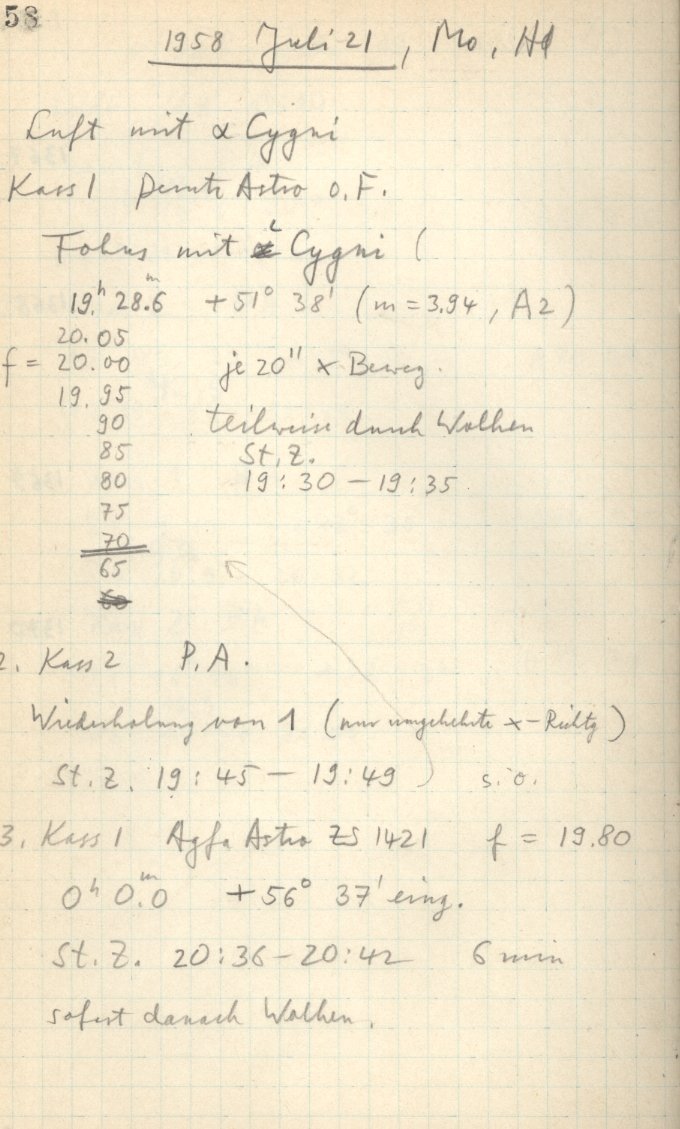 58
1958 Juli 21, Mo, Hl
Luft mit α Cygni
Kass 1 Perutz Astro o. F.
Fokus mit ι Cygni (
19h 28.6m +51° 38' (m = 3.94, A2)
20.05
f = 20.00 je 20" x Beweg.
19.95
90 teilweise durch Wolken
85 St. Z.
80 19:30 – 19:35
75
70
65
60
2. Kass 2 P. A.
Wiederholung von 1 (nur umgekehrte x-Richtg)
St. Z. 19:45 – 19:49 s. o.
3. Kass 1 Agfa Astro ZS 1421 f = 19.80
0h 0.0m +56° 37' eing.
St. Z. 20:36 – 20:42 6 min
sofort danach Wolken.